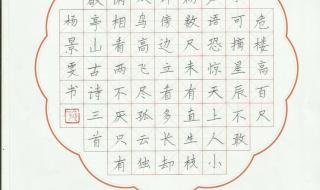 危楼高百尺
可摘星辰不敢
语恐惊天上人小
数尺未有直生枝
傍边立看多长却
鸟高飞尽孤云独
相看两不厌只有
敬亭山古诗三首
杨景雯书